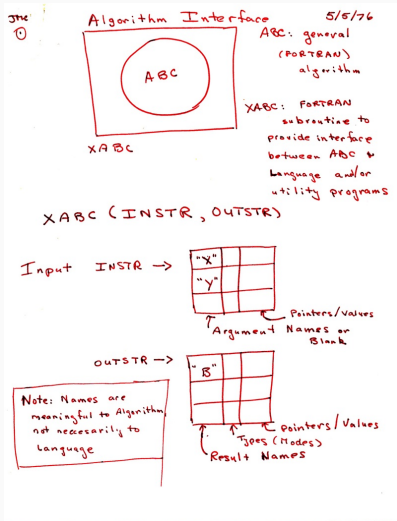 JMC
①
Algorithm Interface
5/5/76
ABC
XABC
ABC: general
(FORTRAN)
algorithm
XABC: FORTRAN
subroutine to
provide interface
between ABC &
Language and/or
utility programs
XABC (INSTR, OUTSTR)
Input INSTR →
"X"
"Y"
Pointers/Values
Argument Names or
Blank
OUTSTR →
"B"
Pointers/Values
Types (Modes)
Result Names
Note: Names are
meaningful to Algorithm,
not necessarily to
Language